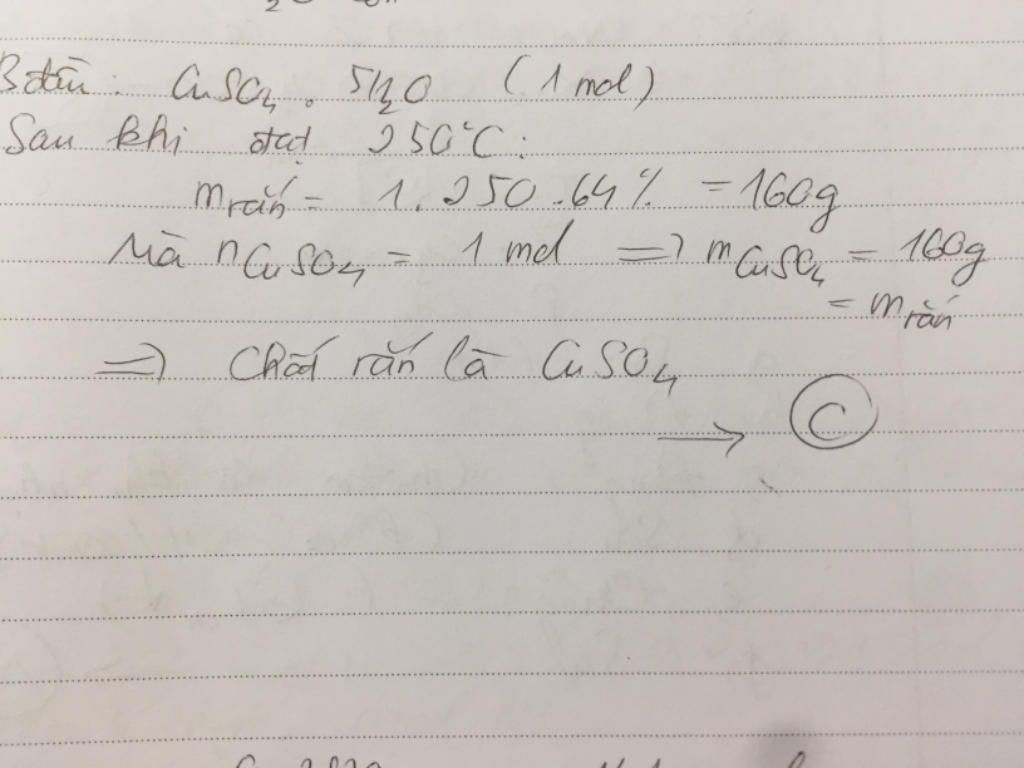 B đầu: CuSO4. 5H2O (1 mol)
Sau khi đạt 250°C:
m rắn = 1. 250 .64% = 160g
Mà nCuSO4 = 1 mol => mCuSO4 = 160g
= m rắn
=> Chất rắn là CuSO4
→ C